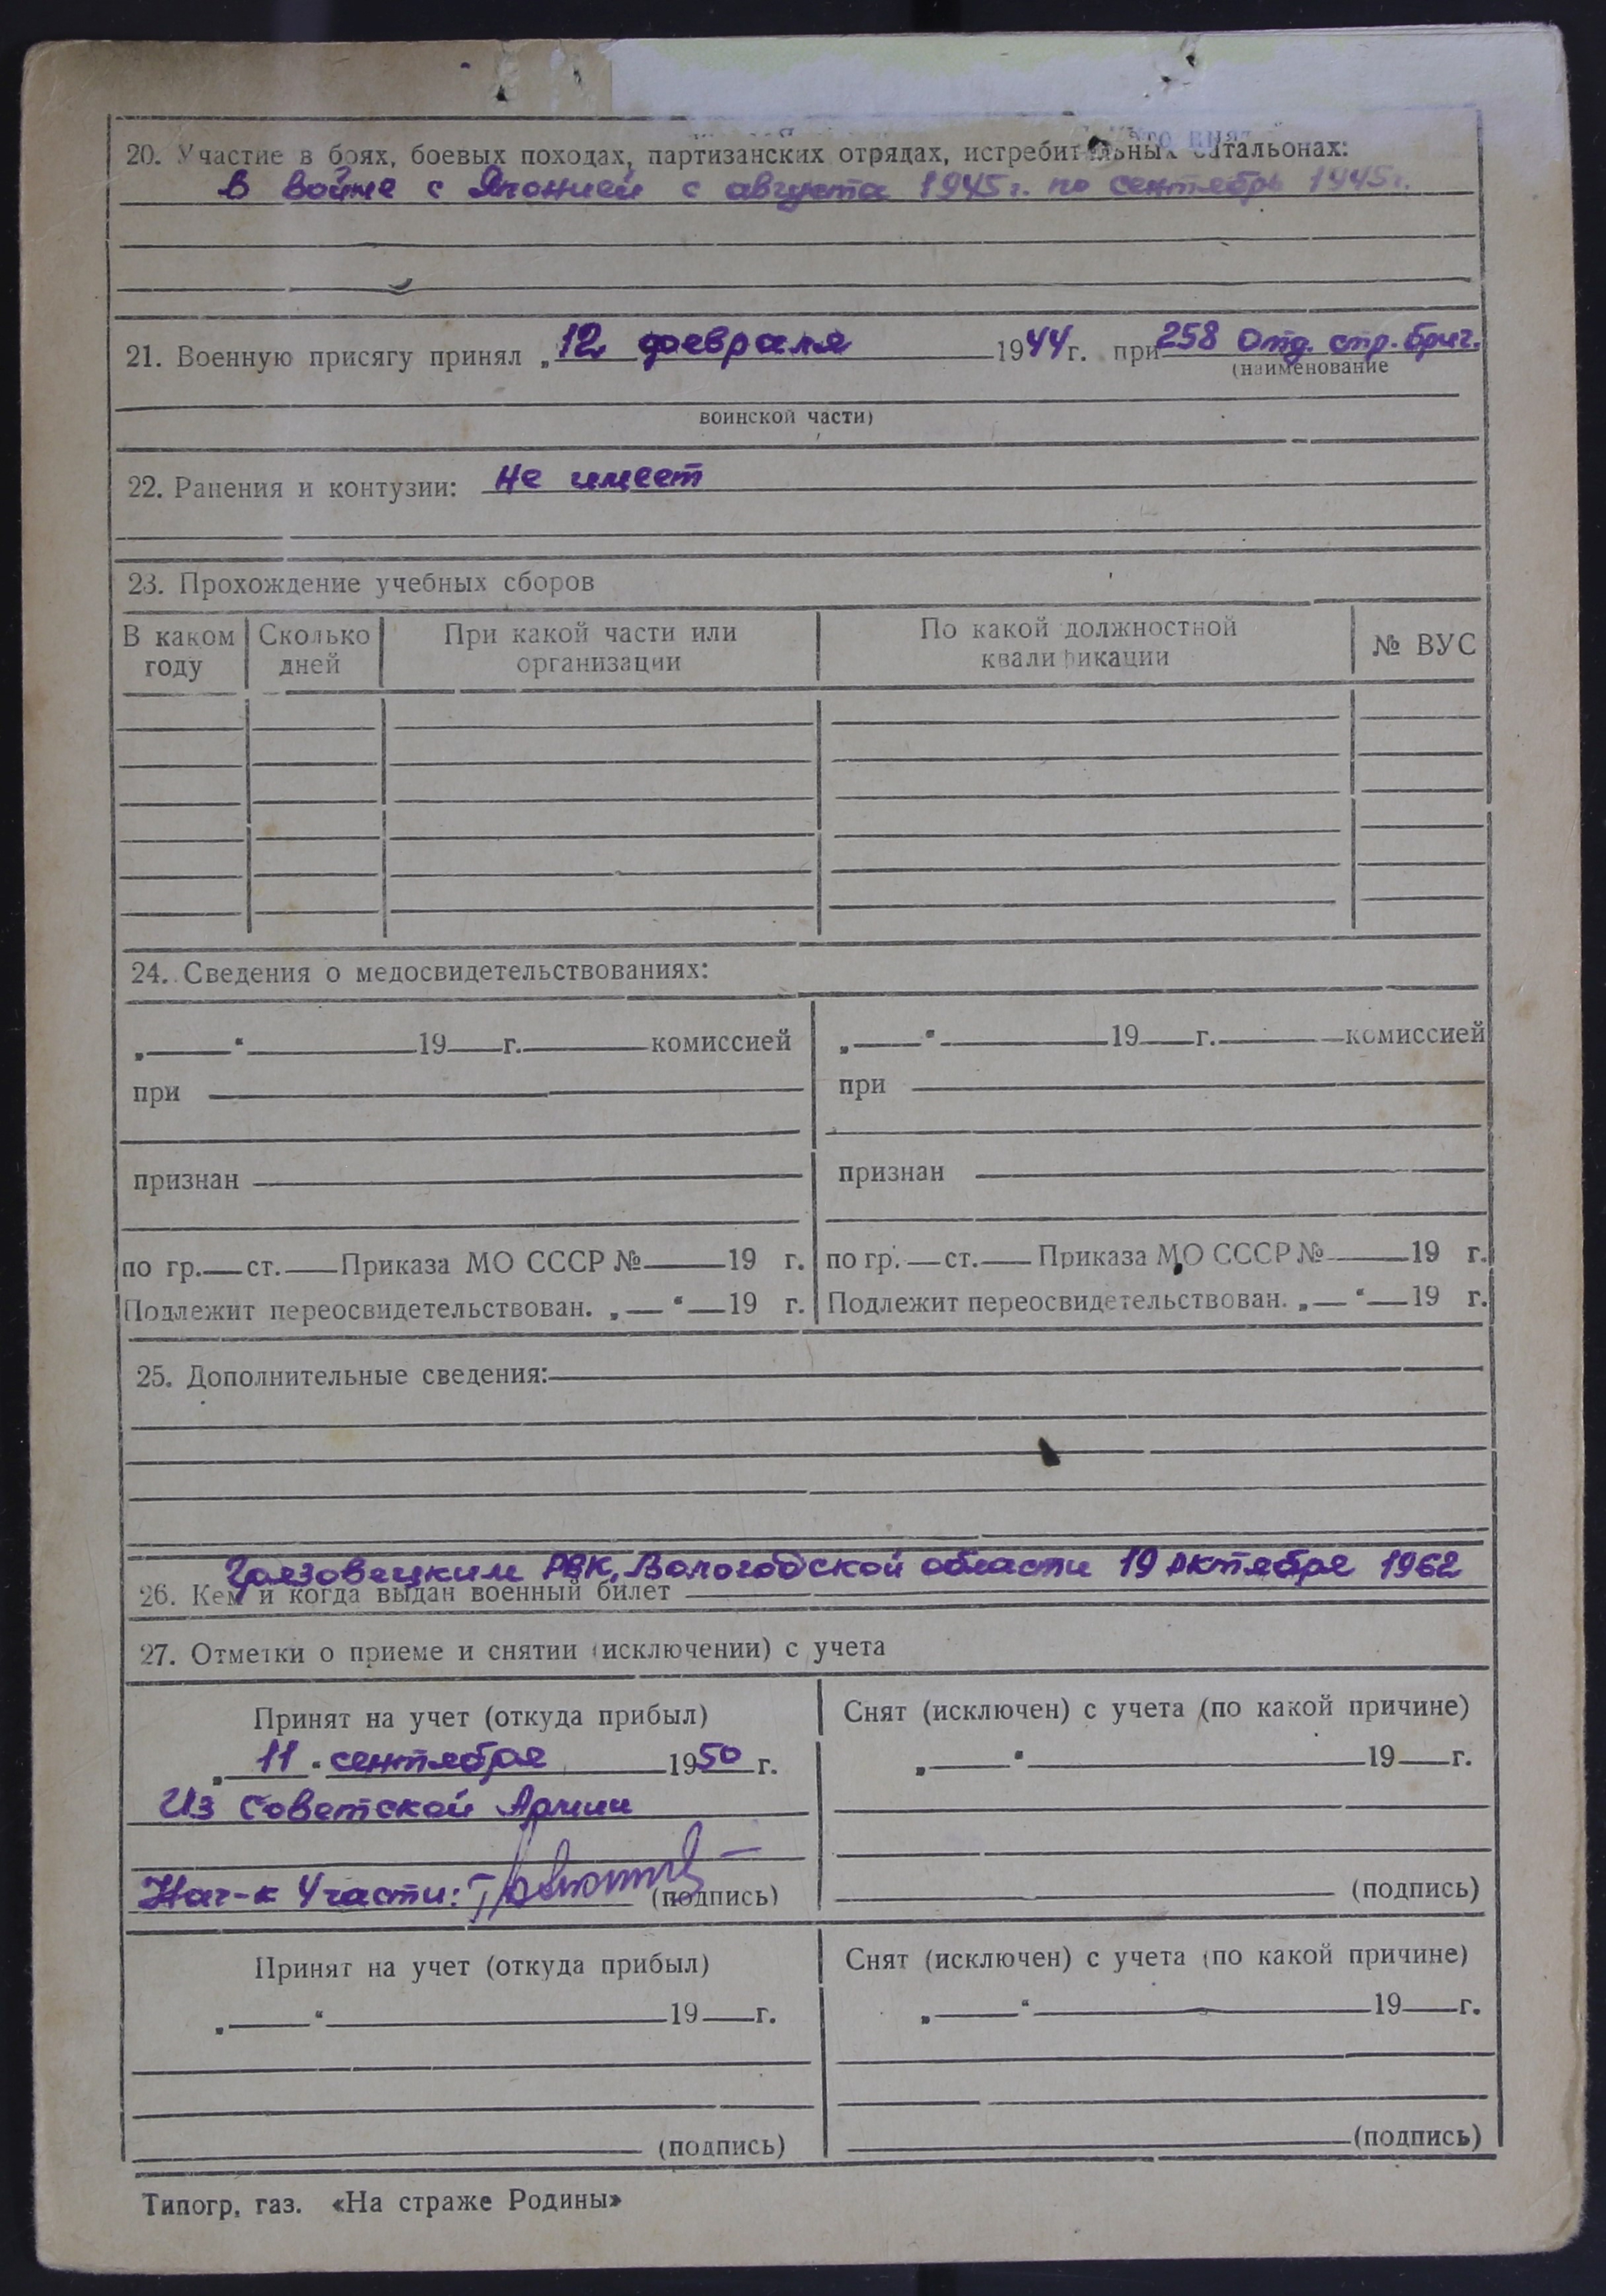 20. Участие в боях, боевых походах, партизанских отрядах, истребительных батальонах:
В войне с Японией с августа 1945 г. по сентябрь 1945 г.
21. Военную присягу принял „12 февраля 1944 г. при 258 отд. стр. бриг.
(наименование
воинской части)
22. Ранения и контузии: Не имеет
23. Прохождение учебных сборов
В каком году | Сколько дней | При какой части или организации | По какой должностной квалификации | № ВУС
24. Сведения о медосвидетельствованиях:
„ “ 19 г. комиссией „ “ 19 г. комиссией
при при
признан признан
по гр. ст. Приказа МО СССР № 19 г. по гр. ст. Приказа МО СССР № 19 г.
Подлежит переосвидетельствован. „ “ 19 г. Подлежит переосвидетельствован. „ “ 19 г.
25. Дополнительные сведения:
Грязовецким РВК, Вологодской области 19 октября 1962
26. Кем и когда выдан военный билет
27. Отметки о приеме и снятии (исключении) с учета
Принят на учет (откуда прибыл) Снят (исключен) с учета (по какой причине)
„ 11 “ сентября 1950 г. „ “ 19 г.
Из Советской Армии
Нач-к Части: (подпись) (подпись)
Принят на учет (откуда прибыл) Снят (исключен) с учета (по какой причине)
„ “ 19 г. „ “ 19 г.
(подпись) (подпись)
Типогр. газ. «На страже Родины»